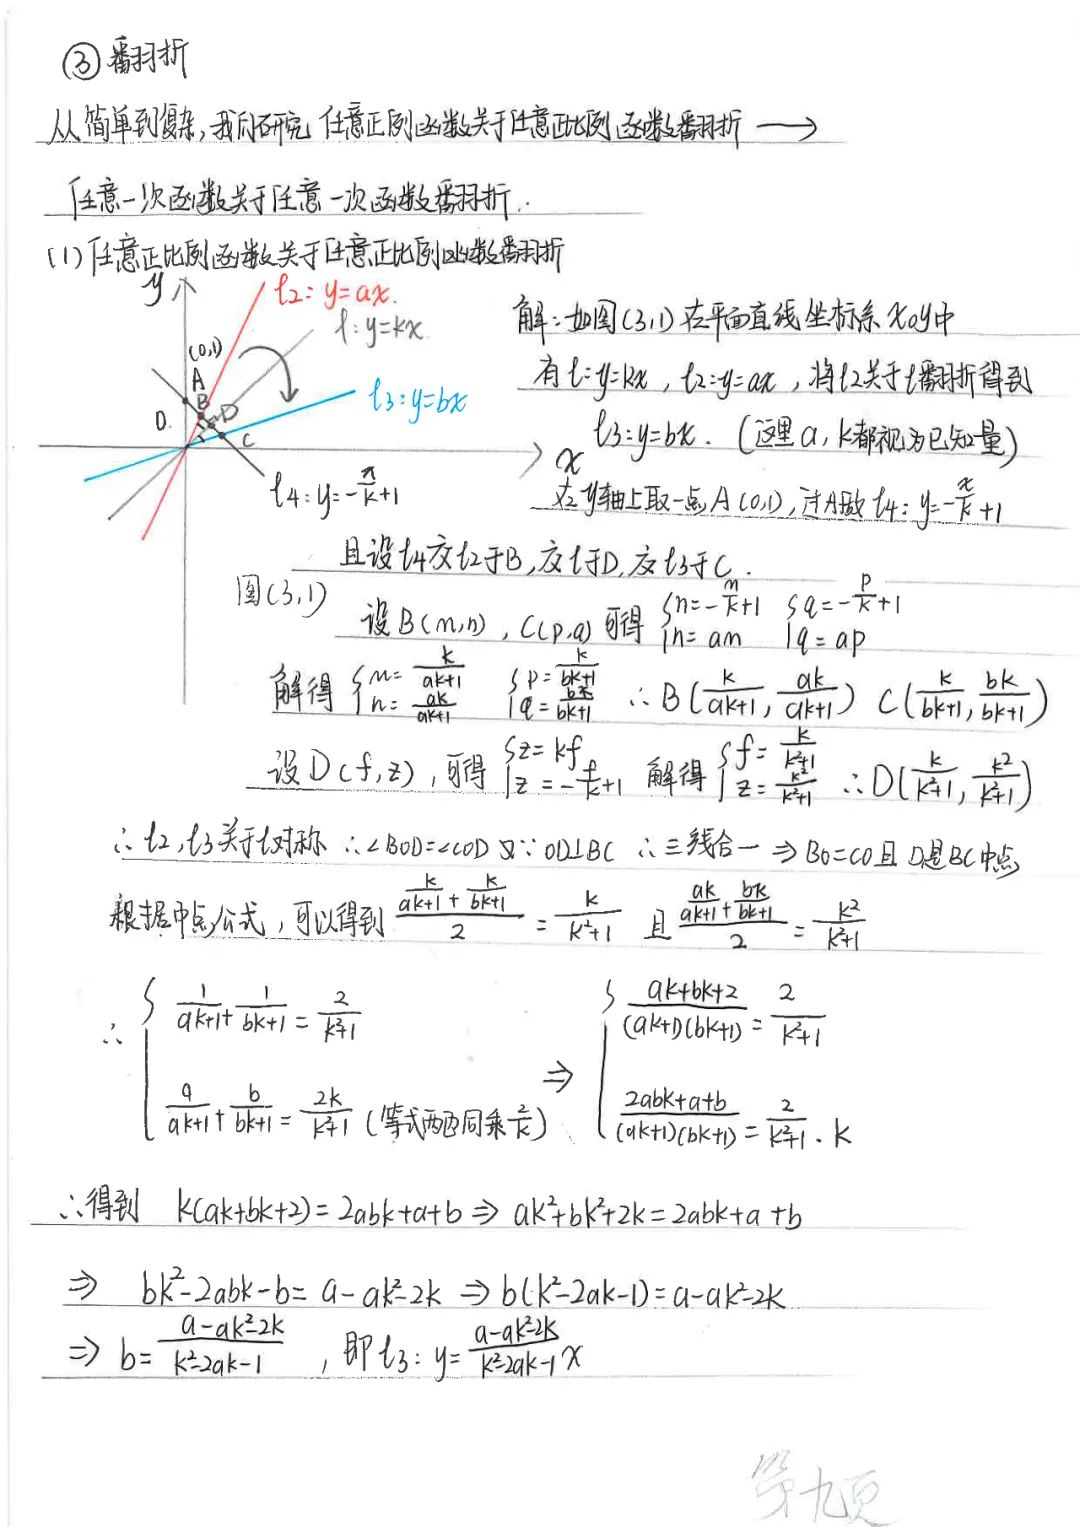 ③翻折
从简单到复杂，我们研究 任意正比例函数关于任意正比例函数翻折 →
任意一次函数关于任意一次函数翻折.
(1)任意正比例函数关于任意正比例函数翻折
y
l2: y=ax.
l: y=kx.
(0,1)
A
B
D
C
O.
l3: y=bx
x
l4: y=-x/k+1
图(3,1)
解：如图(3,1)在平面直线坐标系xoy中
有l: y=kx，l2: y=ax，将l2关于l翻折得到
l3: y=bx. (这里a，k都视为已知量)
在y轴上取一点A(0,1)，过A做l4: y=-x/k+1
且设l4交l2于B，交l于D，交l3于C.
设B(m,n)，C(p,q)可得 {n=-m/k+1 n=am {q=-p/k+1 q=ap
解得 {m=k/(ak+1) n=ak/(ak+1) {p=k/(bk+1) q=bk/(bk+1) ∴B(k/(ak+1), ak/(ak+1)) C(k/(bk+1), bk/(bk+1))
设D(f,z)，可得 {z=kf z=-f/k+1 解得 {f=k/(k²+1) z=k²/(k²+1) ∴D(k/(k²+1), k²/(k²+1))
∵l2,l3关于l对称 ∴∠BOD=∠COD 又∵OD⊥BC ∴三线合一 ⇒ BO=CO且 D是BC中点
根据中点公式，可以得到 (k/(ak+1)+k/(bk+1))/2 = k/(k²+1) 且 (ak/(ak+1)+bk/(bk+1))/2 = k²/(k²+1)
∴ {1/(ak+1)+1/(bk+1)=2/(k²+1) ⇒ {(ak+bk+2)/((ak+1)(bk+1))=2/(k²+1)
a/(ak+1)+b/(bk+1)=2k/(k²+1) (等式两边同乘2/k) (2abk+a+b)/((ak+1)(bk+1))=2/(k²+1)·k
∴得到 k(ak+bk+2)=2abk+a+b ⇒ ak²+bk²+2k=2abk+a+b
⇒ bk²-2abk-b=a-ak²-2k ⇒ b(k²-2ak-1)=a-ak²-2k
⇒ b=(a-ak²-2k)/(k²-2ak-1)，即l3: y=(a-ak²-2k)/(k²-2ak-1)x
第九页